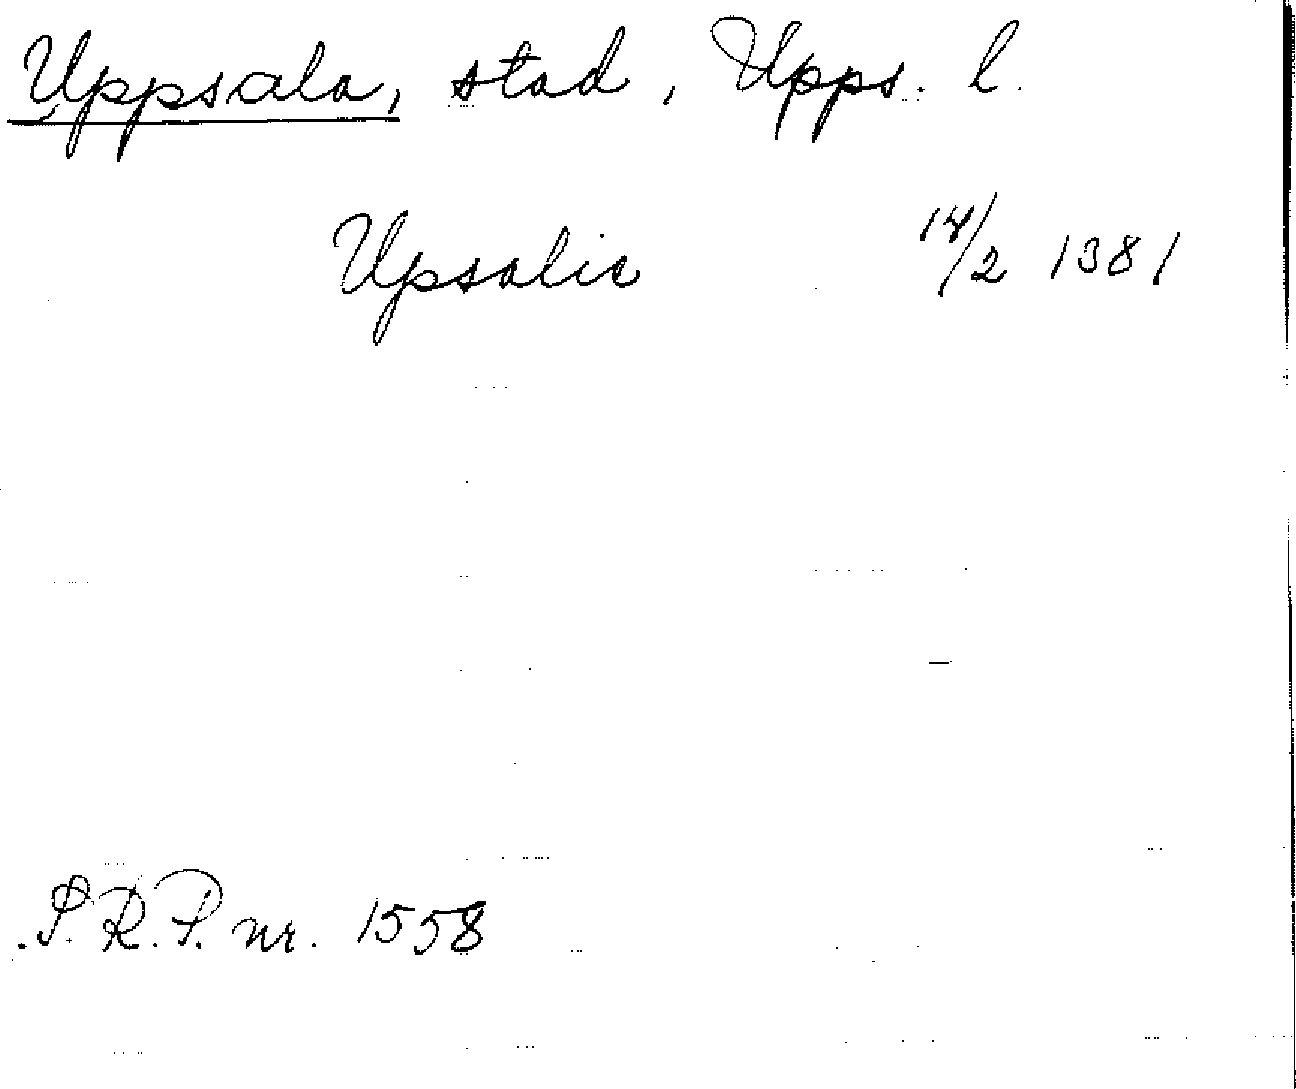 Uppsala, stad, Upps. l.
Upsalie 14/2 1381
S.R.P. nr. 1558